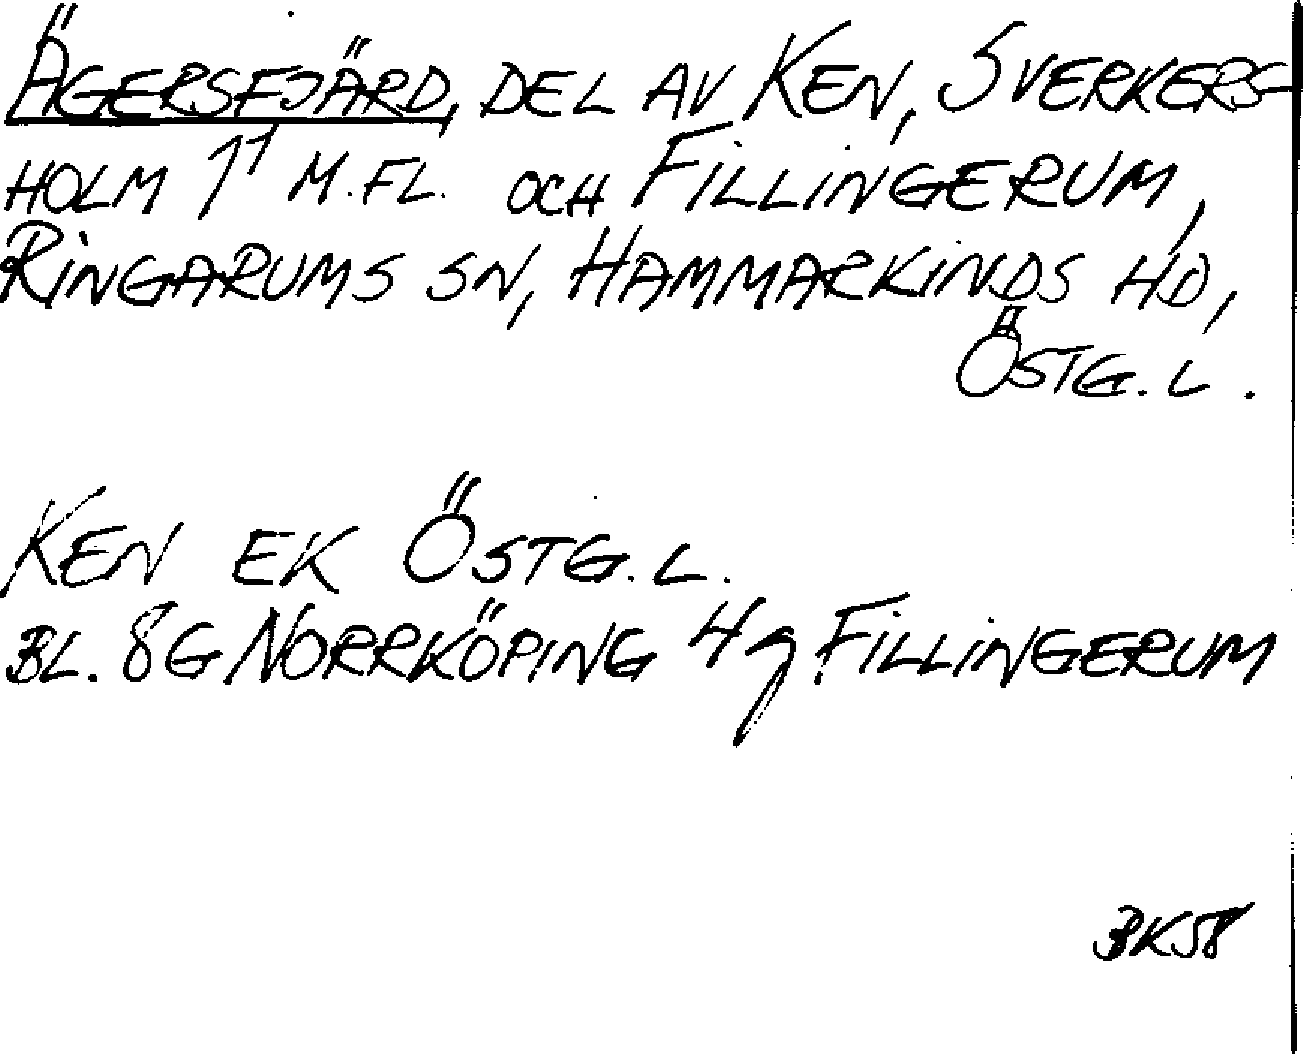 ÄGERSFJÄRD, DEL AV KEN, SVERKERS-
HOLM 1¹ M.FL. OCH FILLINGERUM,
RINGARUMS SN, HAMMARKINDS HD,
ÖSTG. L.
KEN EK ÖSTG. L.
BL. 8G NORRKÖPING 4g FILLINGERUM
BK58